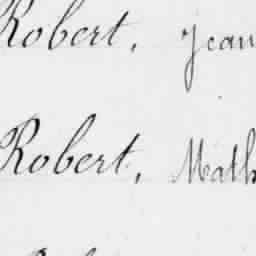 Robert, Jean
Robert, Math